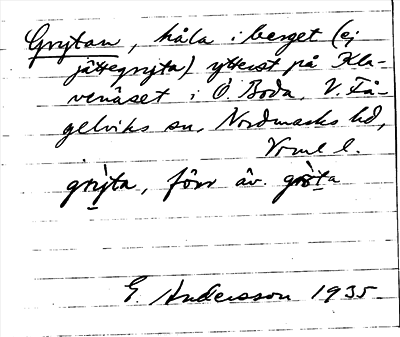 Grytan, håla i berget (ej
jättegryta) ytterst på Kla-
venäset i Ö Boda, V. Få-
gelviks sn, Nordmarks hd,
Vrml l.
grỳta, förr äv. grö̀ta
E Andersson 1935